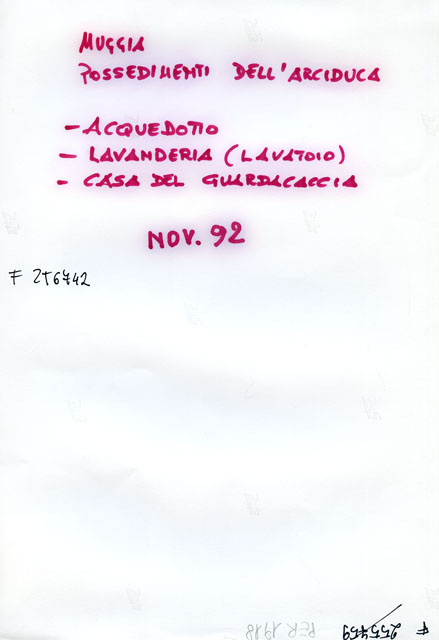 MUGGIA
POSSEDIMENTI DELL'ARCIDUCA
- ACQUEDOTTO
- LAVANDERIA (LAVATOIO)
- CASA DEL GUARDACACCIA
NOV. 92
F 276742
F 255759
PER 1918